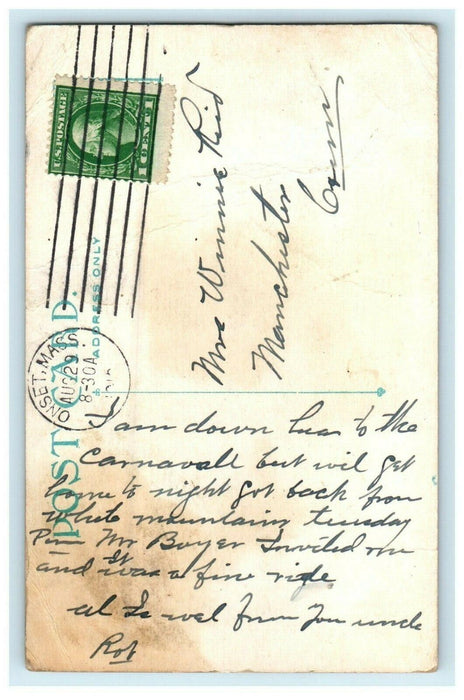 POST CARD.
ADDRESS ONLY
U.S. POSTAGE
1 CENT 1
ONSET, MASS
AUG 29
8-30A
Mrs Winnie Reid
Manchester
Conn.
I am down hear to the
Carnavall but wil get
home to night got back from
White mountains tuesday
Mr Boyer Invited me
and It was a fine ride
al Is wel from You uncle
Rob